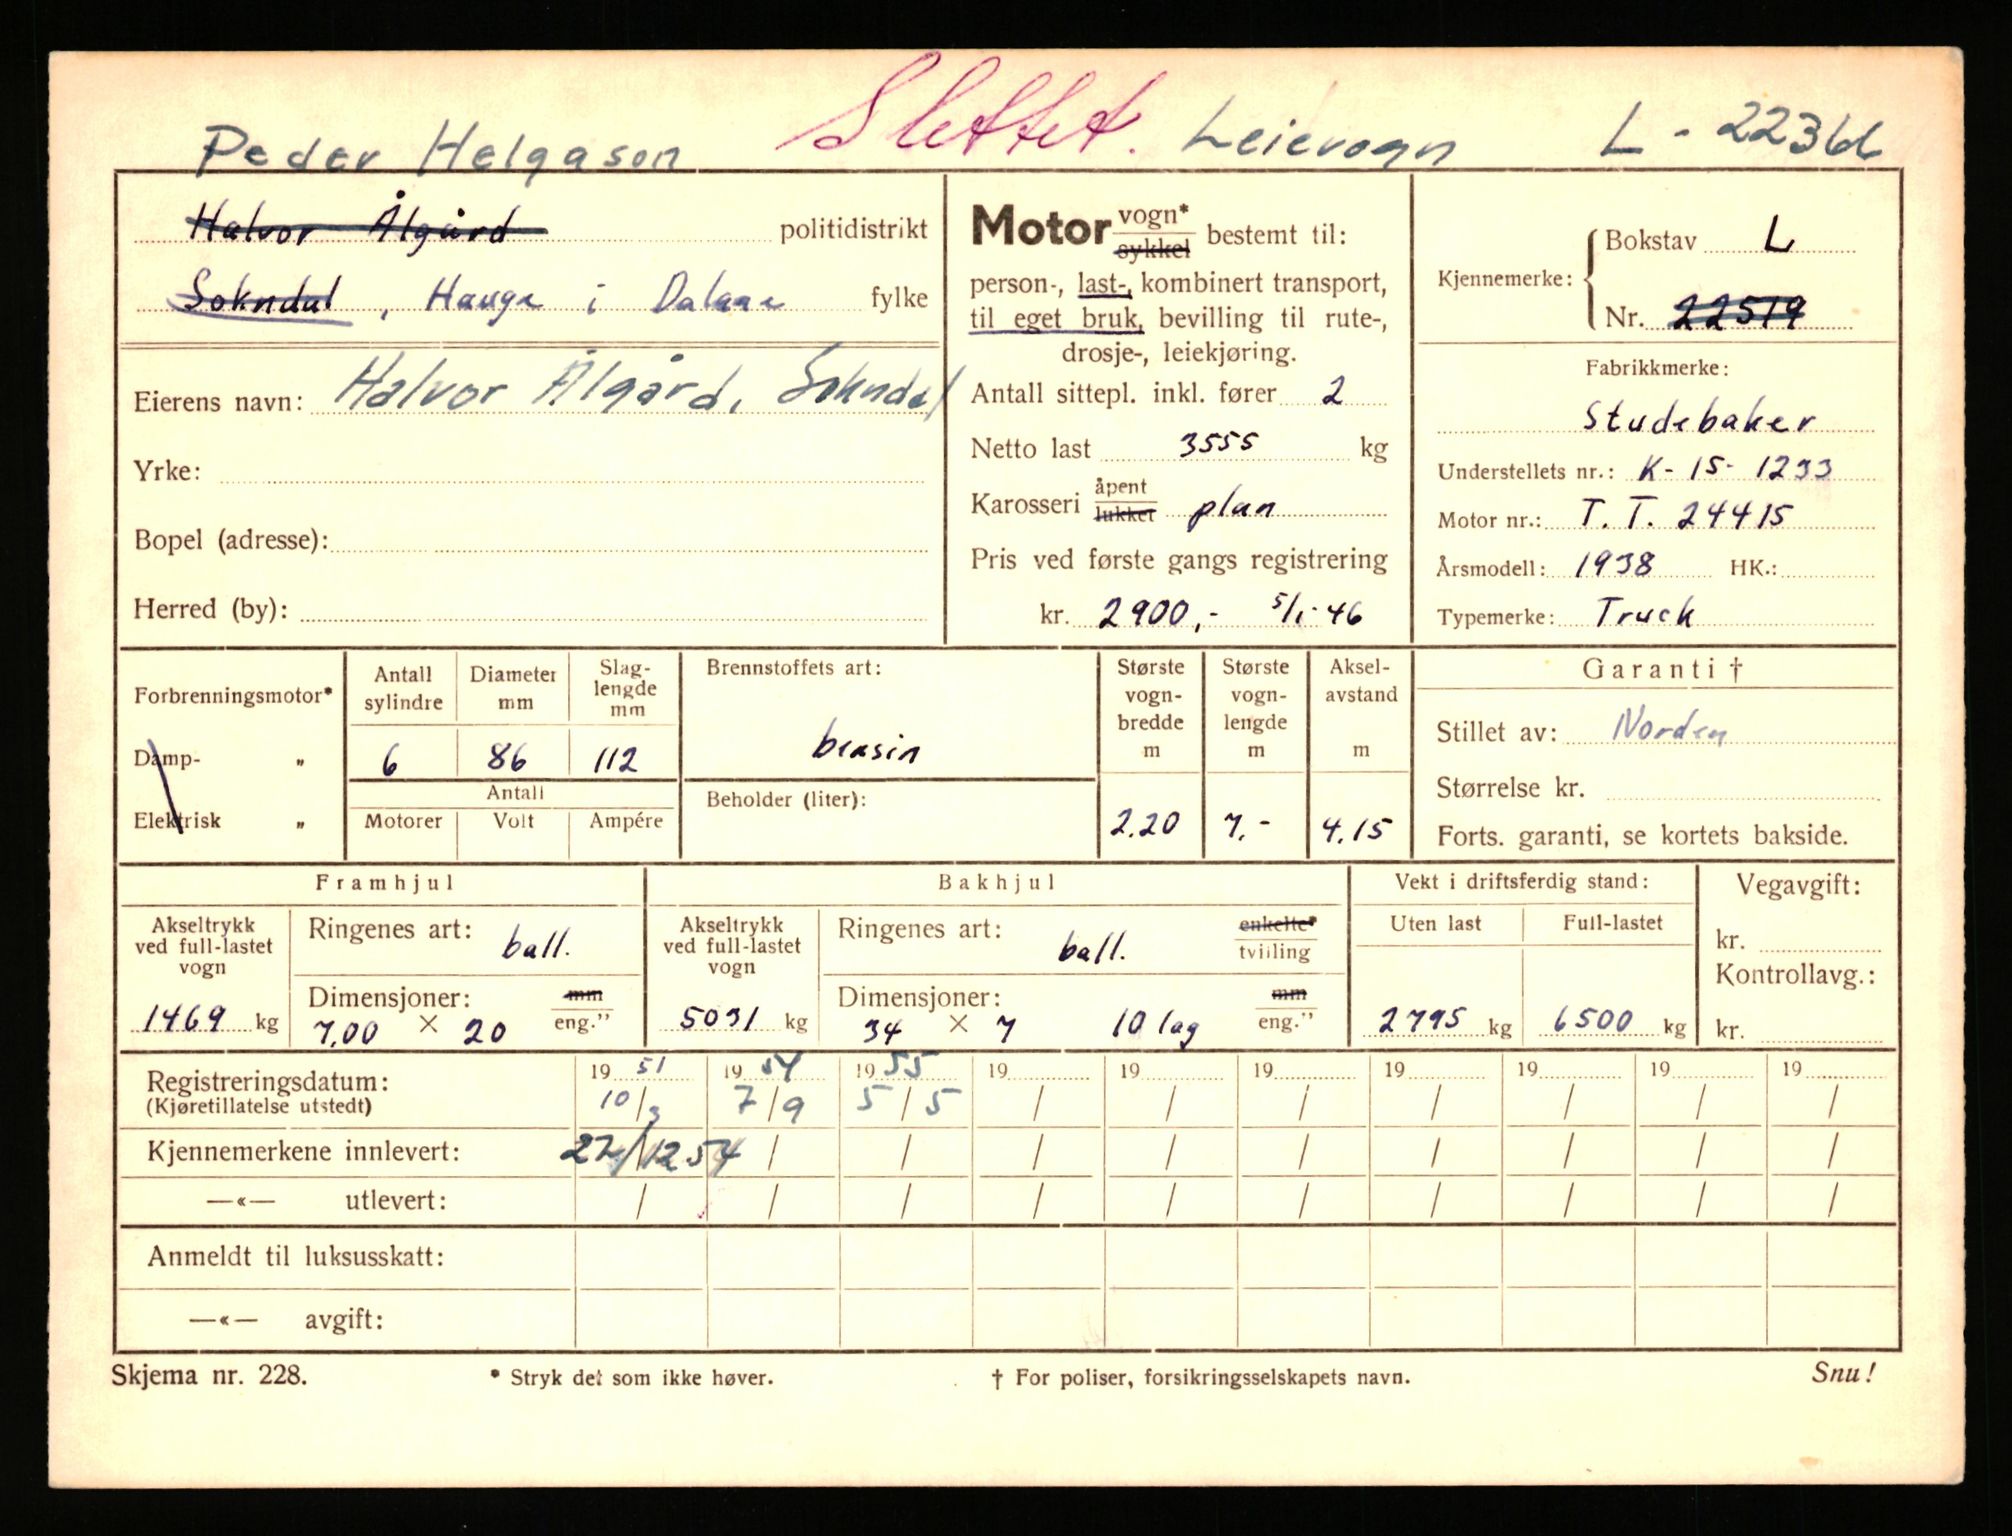 Slettet. Leievogn L - 22366
Peder Helgason
Halvor Ålgård politidistrikt
Sokndal, Hauge i Dalane fylke
Eierens navn: Halvor Ålgård, Sokndal
Yrke:
Bopel (adresse):
Herred (by):
Motor vogn* sykkel bestemt til:
person-, last-, kombinert transport,
til eget bruk, bevilling til rute-,
drosje-, leiekjøring.
Antall sittepl. inkl. fører 2
Netto last 3555 kg
Karosseri åpent lukket plan
Pris ved første gangs registrering
kr. 2900,- 5/1-46
Kjennemerke: Bokstav L
Nr. 22519
Fabrikkmerke:
Studebaker
Understellets nr.: K-15-1233
Motor nr.: T. T. 24415
Årsmodell: 1938 HK.:
Typemerke: Truck
Forbrenningsmotor*
Damp- „
Elektrisk „
Antall sylindre Diameter mm Slag-lengde mm
6 86 112
Antall
Motorer Volt Ampére
Brennstoffets art:
bensin
Beholder (liter):
Største vogn-bredde m
2.20
Største vogn-lengde m
7,-
Aksel-avstand m
4.15
Garanti †
Stillet av: Norden
Størrelse kr.
Forts. garanti, se kortets bakside.
Framhjul
Akseltrykk ved full-lastet vogn
1469 kg
Ringenes art: ball.
Dimensjoner: mm
7,00 × 20 eng.”
Bakhjul
Akseltrykk ved full-lastet vogn
5031 kg
Ringenes art: ball. enkelte* tvilling
Dimensjoner: mm
34 × 7 10 lag eng.”
Vekt i driftsferdig stand:
Uten last Full-lastet
2795 kg 6500 kg
Vegavgift:
kr.
Kontrollavg.:
kr.
Registreringsdatum: 1951 1954 1955 19 19 19 19 19 19 19
(Kjøretillatelse utstedt) 10/3 7/9 5/5 / / / / / / /
Kjennemerkene innlevert: 22/12 54 / / / / / / / / /
—«— utlevert: / / / / / / / / / /
Anmeldt til luksusskatt:
—«— avgift:
Skjema nr. 228. * Stryk det som ikke høver. † For poliser, forsikringsselskapets navn. Snu!